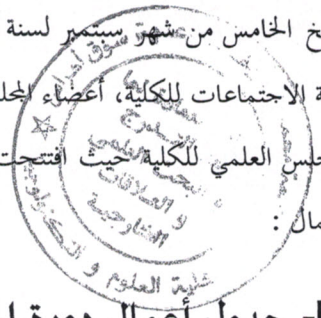 خ الخامس من شهر سبتمبر لسنة
ة الاجتماعات للكلية، أعضاء المجلـ
لس العلمي للكلية حيث افتتحت
مال :
سوق أهراس
و العلاقات
الخارجية
كلية العلوم و التكنولوجيا
- جدول أعمال دورة ا